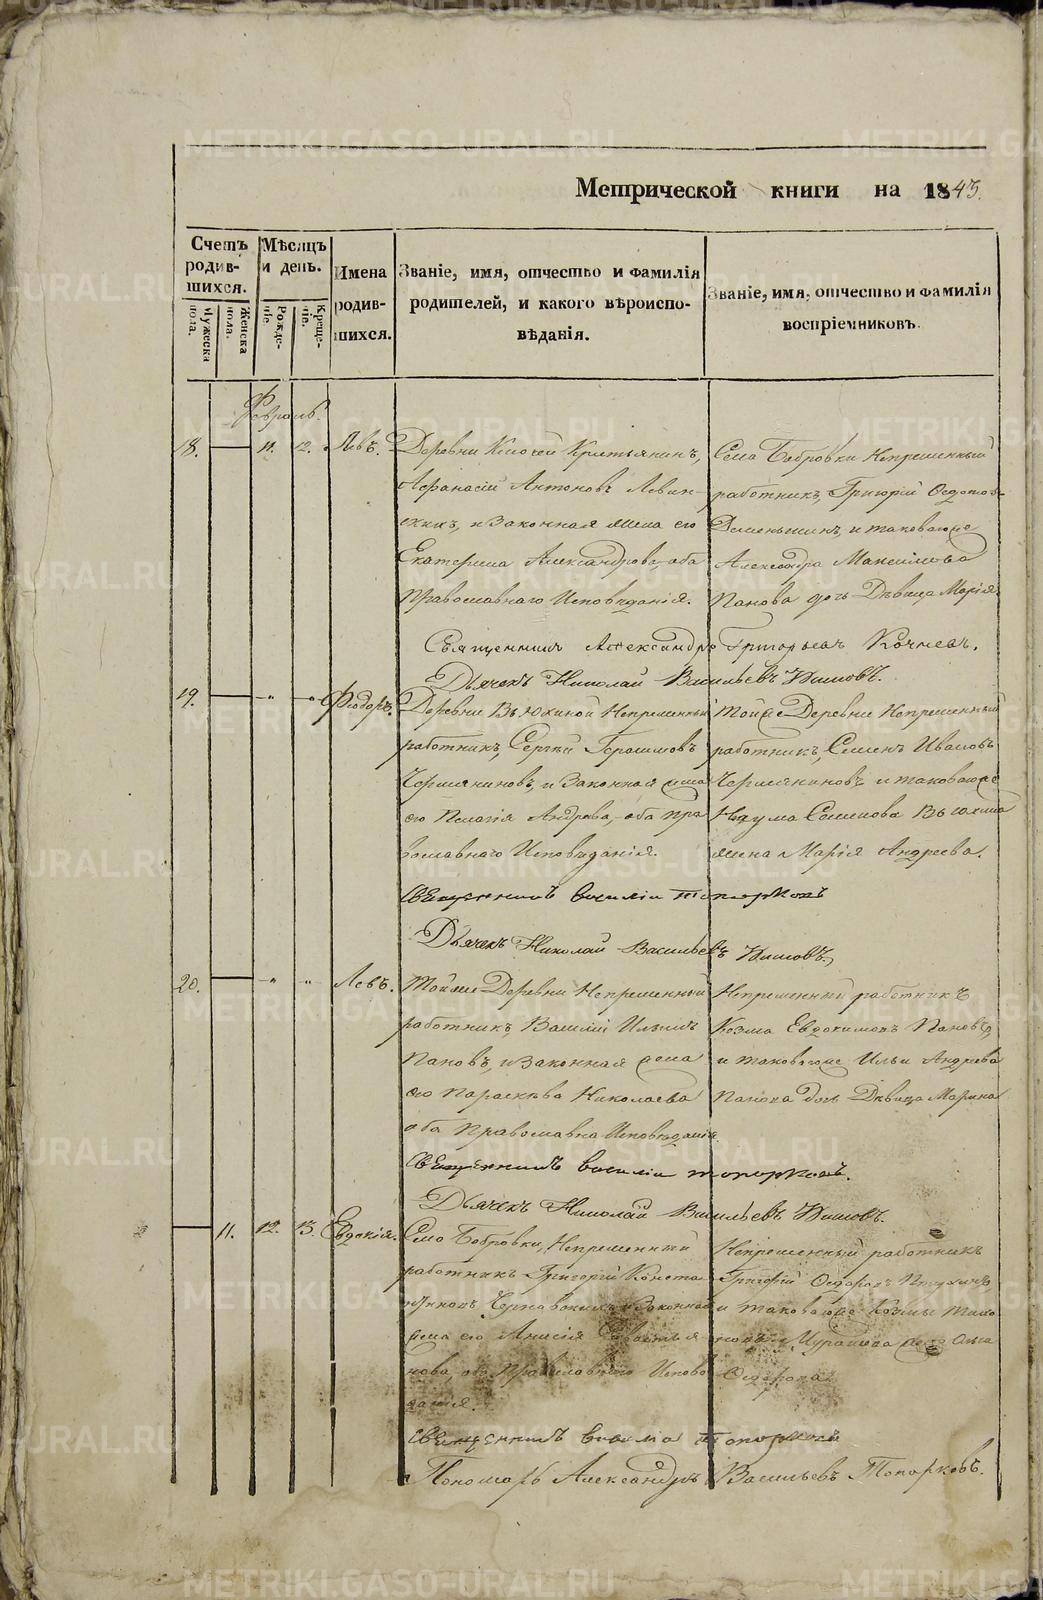 Метрической книги на 1843.
Счетъ родившихся.
Мѣсяцъ и день.
Имена родившихся.
Званіе, имя, отчество и фамилія
родителей, и какого вѣроиспо-
вѣданія.
Званіе, имя, отчество и фамилія
воспріемниковъ.
Мужеска пола.
Женска пола.
Рожденіе.
Крещеніе.
Февраль.
18. 11. 12. Левъ.
Деревни Ключей Крестьянинъ,
Афанасій Антоновъ Левин-
скихъ, и Законная жена его
Екатерина Александрова, оба
Православнаго Исповѣданія.
Села Бобровки Непременный
работникъ, Григорій Федотовъ
и таковагоже
Александра Максимова
Панова дочь Дѣвица Марія.
Священникъ Александръ Григорьевъ Кочневъ.
Дьячекъ Николай Васильевъ
19. -"- -"- Феодоръ.
Деревни Вьюхиной Непременный
работникъ, Сергѣй Герасимовъ
Черемяниновъ, и Законная жена
его Пелагія Андрева, оба пра
вославнаго Исповѣданія.
Тойже Деревни Непременный
работникъ, Семенъ Ивановъ
Черемяниновъ и таковагоже
Наума Семенова Вьюхина
жена Марія Андреева.
Священникъ Василій Топорковъ
Дьячекъ Николай Васильевъ
20. -"- " Левъ.
Тойже Деревни Непременный
работникъ, Василій Ильинъ
Пановъ, и Законная жена
его Параскева Николаева
оба Православна Исповѣданія.
Непременный работникъ
Козма Евдокимовъ Пановъ,
и таковагоже Ильи Андрева
Панова дочь Дѣвица Марина
Священникъ Василій Топорковъ.
Дьячекъ Николай Васильевъ
11. 12. 13. Евдокія.
Села Бобровки, Непременный
работникъ Григорій Конста
нтиновъ и Законная
жена его Анисія Савастья
нова, оба Православнаго Исповѣ
данія.
Непременный работникъ
Григорій Федоровъ
и таковагоже Козмы
жена
Федорова
Священникъ Василій Топорковъ
Пономарь Александръ Васильевъ Топорковъ.
METRIKI.GASO-URAL.RU